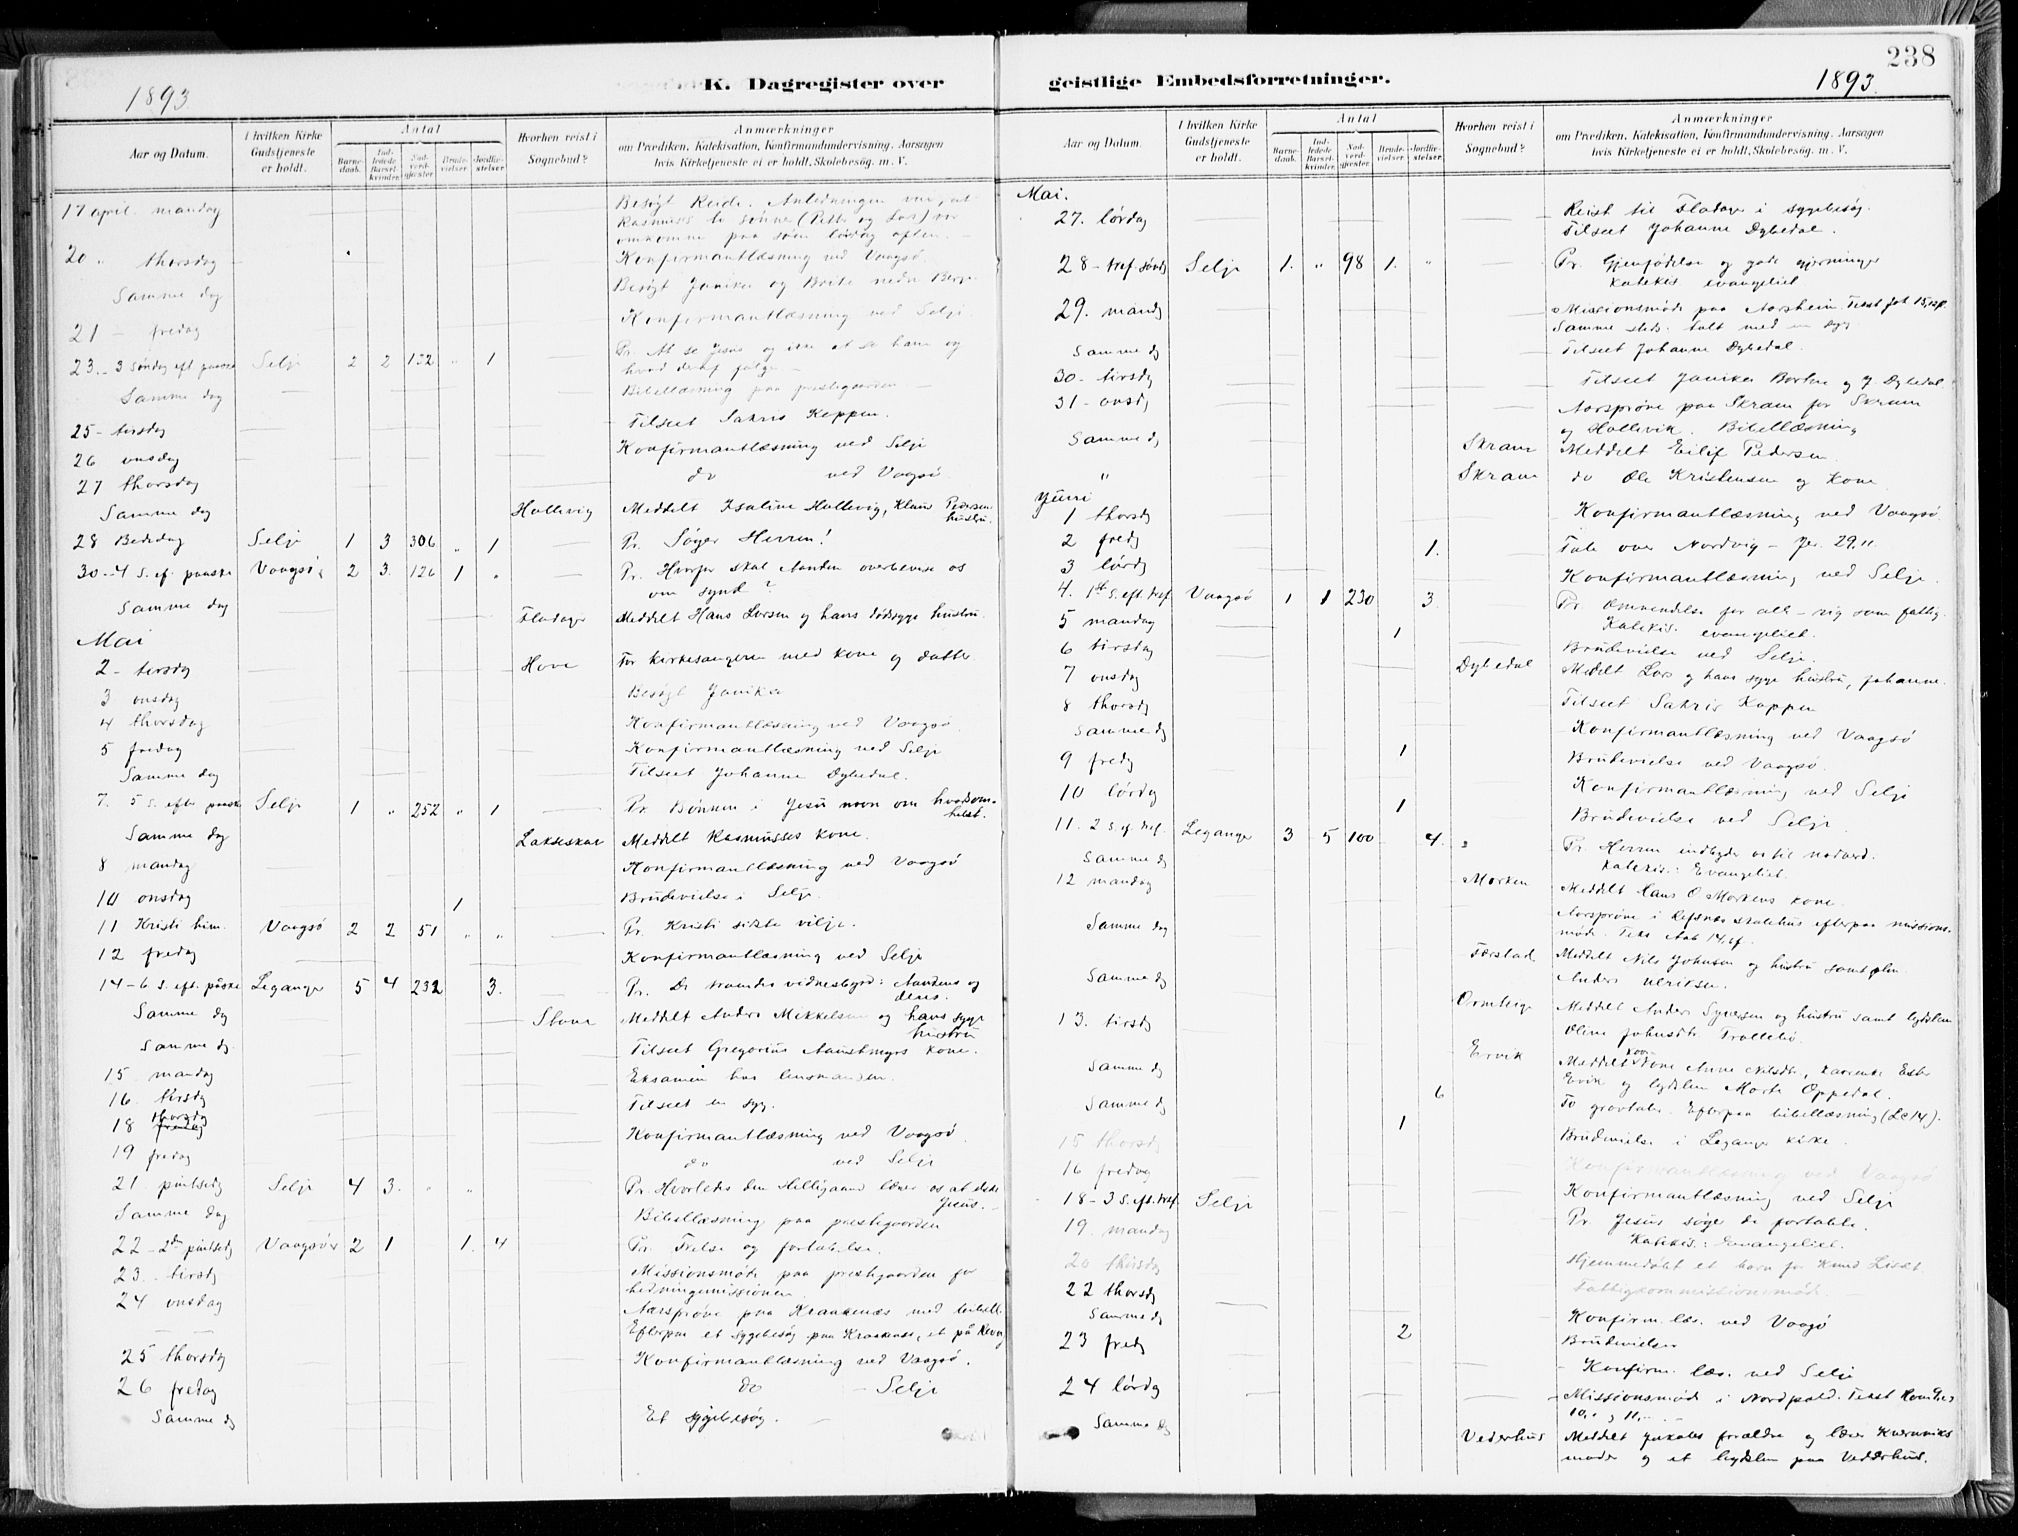 238
1893
K. Dagregister over
geistlige Embedsforretninger.
1893.
Aar og Datum.
I hvilken Kirke Gudstjeneste er holdt.
Antal
Barnedaab.
Indledede Barselkvinder.
Nadverdgjester
Brudevielser
Jordfæstelser
Hvorhen reist i Sognebud?
Anmærkninger
om Prædiken, Katekisation, Konfirmandundervisning, Aarsagen
hvis Kirketjeneste ei er holdt, Skolebesøg m. V.
17 april mandag Besøgt Anledningen var, at
Rasmuses to sønner (Petter og Lars) var
omkomne paa søen lørdag aften.
20 " thorsdag Konfirmantlæsning ved Vaagsø.
Samme dag Besøgt Janike og Brite nedre Berge
21 - fredag Konfirmantlæsning ved Selje.
23 - 3 søndag eft. paaske Selje 2 2 132 " 1 Pr. At se Jesus og ikke at se ham og
hvad deraf følger
Samme dag Bibellæsning paa prestegaarden.
25 - tirsdag Tilseet Sakris Koppen.
26 onsdag Konfirmantlæsning ved Selje
27 thorsdag do ved Vaagsø
Samme dag Hallevig Meddelt Isaline Hallevig, Klaus Pedersens
hustru.
28 Bededag Selje 1 3 306 " 1 Pr. Søger Herren!
30 - 4 S. ef. paaske Vaagsø 2 3 126 1 " Pr. Hvorfor skal Aanden overbevise os
om synd?
Samme dag Fladager Meddelt Hans Larsen og hans dødssyge hustru.
Mai
2 - tirsdg Hove For kirkesangeren med kone og datter
3 onsdag Besøgt Janike
4 thorsdag Konfirmantlæsning ved Vaagsø.
5 fredag Konfirmantlæsning ved Selje
Samme dag Tilseet Johanne Dybedal.
7. 5 S. efter paaske Selje 1 " 252 " 1 Pr. Bønnen i Jesu navn om hvadsom-
helst.
Samme dag Lakseskar Meddelt Rasmusses kone.
8 mandag Konfirmantlæsning ved Vaagsø
10 onsdag 1 Brudevielse i Selje.
11 Kristi him. Vaagsø 2 2 51 " " Pr. Kristi sidste vilje.
12 fredag Konfirmantlæsning ved Selje
14 - 6 S. eft. påske Leganger 5 4 232 3. Pr. De vidnesbyrd: Aandens og
deres.
Samme dag Stove Meddelt Anders Mikkelsen og hans syge
hustru
Samme dg. Tilseet Gregorius kone.
15 mandag Eksamen hos lensmanden.
16 tirsdg Tilseet en syg.
thorsdg
18 fredag Konfirmantlæsning ved Vaagsø
19 fredag do ved Selje
21 pintsedg Selje 4 3. " " Pr. Hvorledes den Helligaand lærer os at elske
Jesus.
Samme dag Bibellæsning paa prestegaarden
22 - 2den pintsedg Vaagsø 2 1 1 4 Pr. Frelse og fortabelse.
23 tirsdg Missionsmøde paa prestegaarden for
hedningemissionen
24 onsdag Aarsprøve paa Kraakenæs med bibell.
Efterpaa et sygebesøg paa Kraakenæs, et på
25 thorsdag Konfirmantlæsning ved Vaagsø.
26 fredag do - Selje
Samme dg Et sygebesøg.
Aar og Datum.
I hvilken Kirke Gudstjeneste er holdt.
Antal
Barnedaab.
Indledede Barselkvinder.
Nadverdgjester
Brudevielser
Jordfæstelser
Hvorhen reist i Sognebud?
Anmærkninger
om Prædiken, Katekisation, Konfirmandundervisning, Aarsagen
hvis Kirketjeneste ei er holdt, Skolebesøg m. V.
Mai.
27. lørdag Reist til Fladager i sygebesøg.
Tilseet Johanne Dybedal.
28 - tref. sønd Selje 1. " 98 1. " Pr. Gjenfødelse og gode gjerninger
Katekis. evangeliet
29. mandg Missionsmøde paa Aarsheim. Tekst
Samme sted talt med en syg
Samme dg Tilseet Johanne Dybedal.
30 - tirsdg Tilseet Janikes og J. Dybedal
31 - onsdg Aarsprøve paa Skram for Skram
og Hallevik. Bibellæsning
Samme dg Skram Meddelt Eilif Pedersen
" Skram do Ole Kristensen og Kone
Juni
1 thorsdg Konfirmantlæsning ved Vaagsø
2 fredg 1. Tale over Nordvig - Jer. 29,11.
3 lørdg Konfirmantlæsning ved Selje.
4. 1st S. eft. tref. Vaagsø 1 1 230 3. Pr. Omvendelse for alle - rig som fattig.
Katekis. evangeliet.
5 mandag 1 Brudevielse ved Selje.
6 tirsdg Dybedal Meddelt Lars og hans syge hustru, Johanne.
7 onsdag Tilseet Sakris Koppen
8 thorsdg Konfirmantlæsning ved Vaagsø
Samme dg 1 Brudevielse ved Vaagsø.
9 fredg Konfirmantlæsning ved Selje
10 lørdg 1 Brudevielse ved Selje
11. 2 S. ef. tref. Leganger 3 5 100 4. Pr. Herren indbyder os til nadverd.
Katekis.: Evangeliet.
Samme dg Morken Meddelt Hans O. Morkens kone.
12 mandag Aarsprøve i Refsnæs skolehus efterpaa missions-
møde.
Samme dag Færstad Meddelt Nils Johnsen og hustru samt
Anders Ulriksen.
Samme dg Ormberge Meddelt Anders og hustru samt
Oline Johnsdt. Trollebø.
13. tirsdg Ervik Meddelt Anne
Ervik og Marte Oppedal.
Samme dg 6 To gravtaler. Efterpaa bibellæsning (Lc 14).
Samme dg 1 Brudevielse i Leganger kirke.
15 thorsdg Konfirmantlæsning ved Vaagsø
16 fredag Konfirmantlæsning ved Selje
18 - 3 S. eft. tref. Selje Pr. Jesus søger de fortabte.
Katekis.: Evangeliet.
19. mandag Hjemmedøbt et barn for Knud
20 thirsdg Fattigcommissionsmøde
22 thorsdg Konfirm. læs. ved Vaagsø
Samme dg 2 Brudevielser
23 fredg Konfirm. læs. ved Selje
24 lørdg Missionsmøde i Nordpold. Tekst
Samme dg Vederhus Meddelt Jakobs forældre og lærer
moder og et paa Vedderhus.